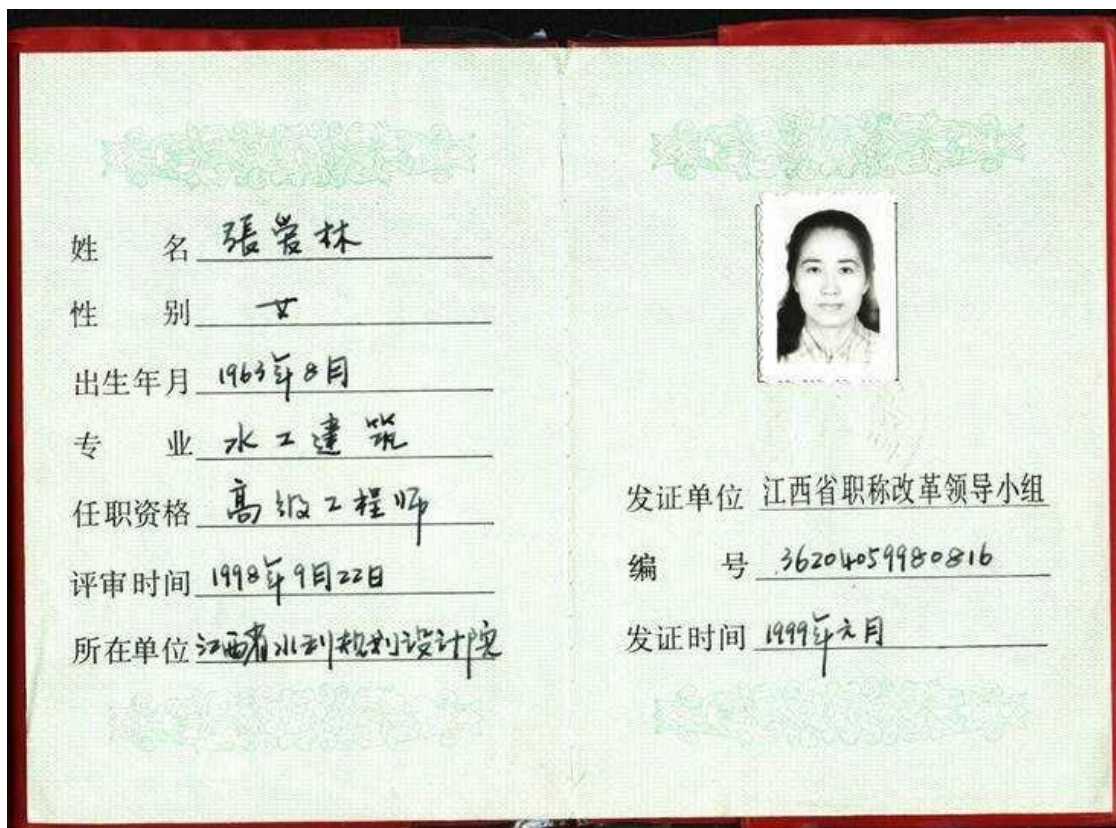 姓名 張爱林
性别 女
出生年月 1963年8月
专业 水工建筑
任职资格 高级工程师
评审时间 1998年9月22日
所在单位 江西省水利规划设计院
发证单位 江西省职称改革领导小组
编号 36204059980816
发证时间 1999年元月